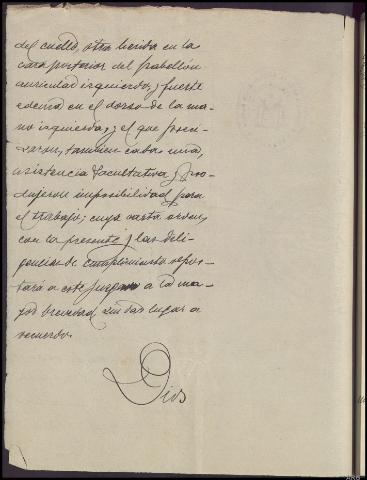 del cuello, otra herida en la
cara posterior del pabellón
auricular izquierdo, y fuerte
edema en el dorso de la ma-
no izquierda, y el que preci-
saron, tambien cada una,
asistencia facultativa y pro-
dujeron imposibilidad para
el trabajo; cuya carta orden,
con la presente y las dili-
gencias de cumplimiento repor-
tará a este Juzgado a la ma-
yor brevedad, sin dar lugar a
recuerdo.
Dios